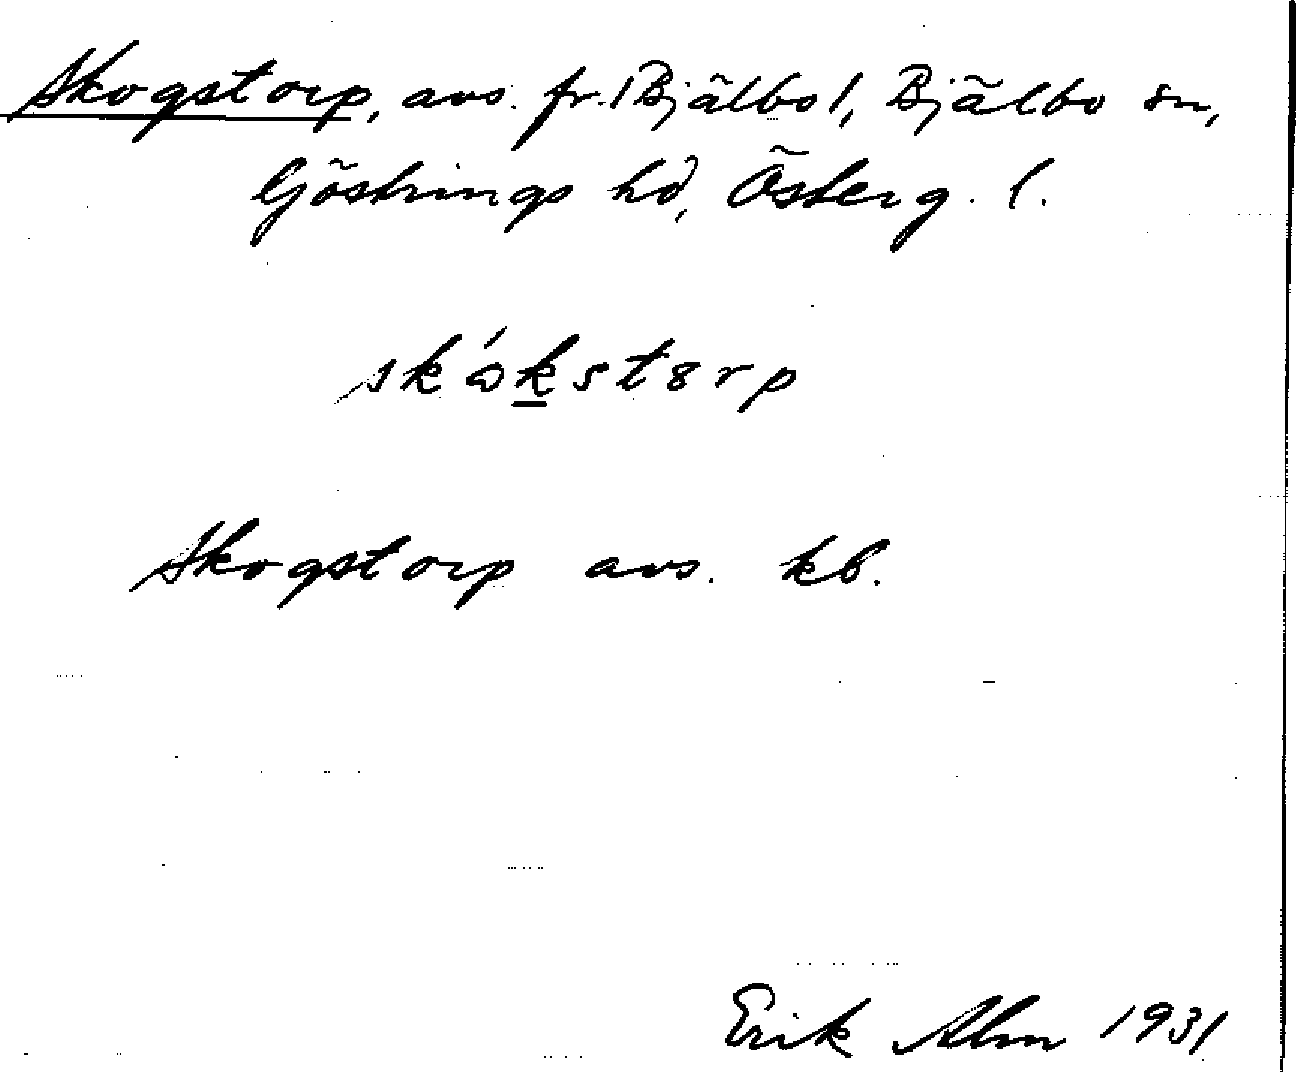 Skogstorp, avs. fr. /Bjälbo/, Bjälbo sn,
Göstrings hd, Österg. l.
skákstȣrp
Skogstorp avs. kb.
Erik Alm 1931